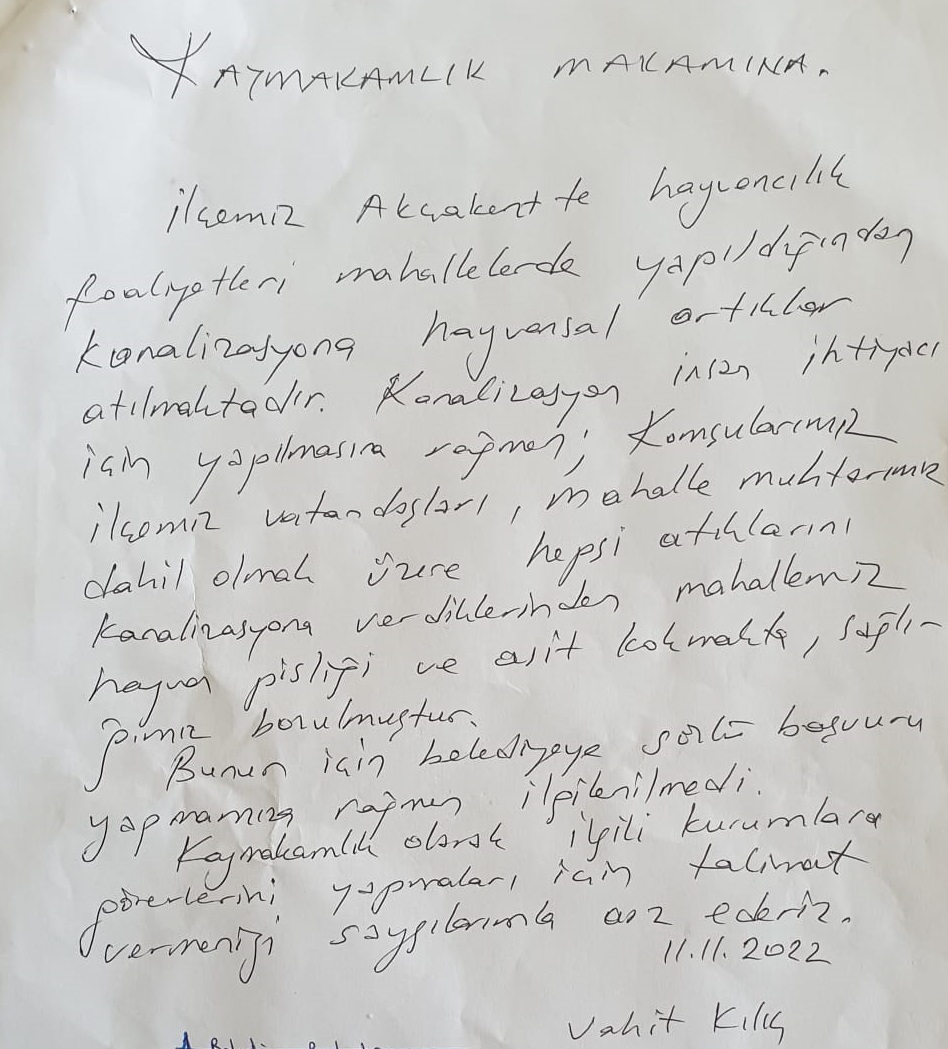 KAYMAKAMLIK MAKAMINA.
İlçemiz Akçakent te hayvancılık
faaliyetleri mahallelerde yapıldığından
kanalizasyona hayvansal artıklar
atılmaktadır. Kanalizasyon insan ihtiyacı
için yapılmasına rağmen; Komşularımız
ilçemiz vatandaşları, mahalle muhtarımız
dahil olmak üzere hepsi atıklarını
kanalizasyona verdiklerinden mahallemiz
hayvan pisliği ve asit kokmakta, sağlı-
ğımız bozulmuştur.
Bunun için belediyeye sözlü başvuru
yapmamıza rağmen ilgilenilmedi.
Kaymakamlık olarak ilgili kurumlara
görevlerini yapmaları için talimat
vermenizi saygılarımla arz ederiz.
11.11.2022
Vahit Kılıç